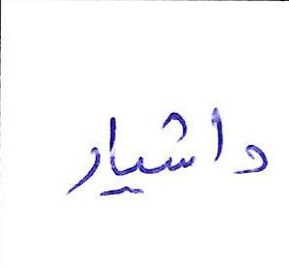 داشیار